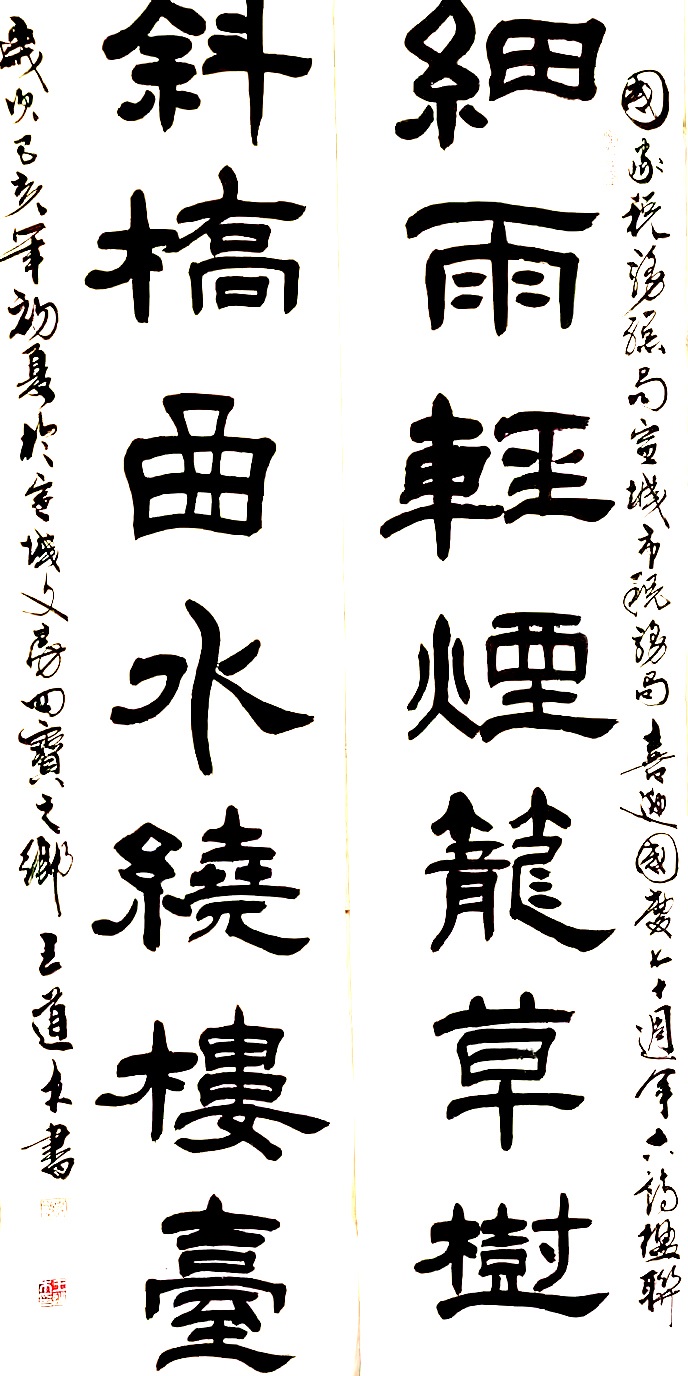 國家稅務總局宣城市稅務局喜迎國慶七十週年六詩楹聯
細雨輕煙籠草樹
斜橋曲水繞樓臺
歲次己亥年初夏於宣城文房四寶之鄉王道本書